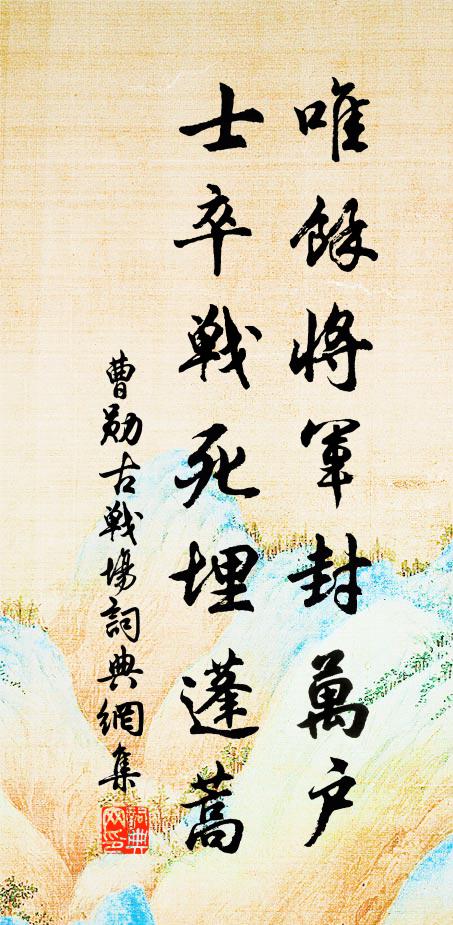 唯餘將軍封萬户
士卒戰死埋蓬蒿
曹勛古戰場詞典網集
詞典網印